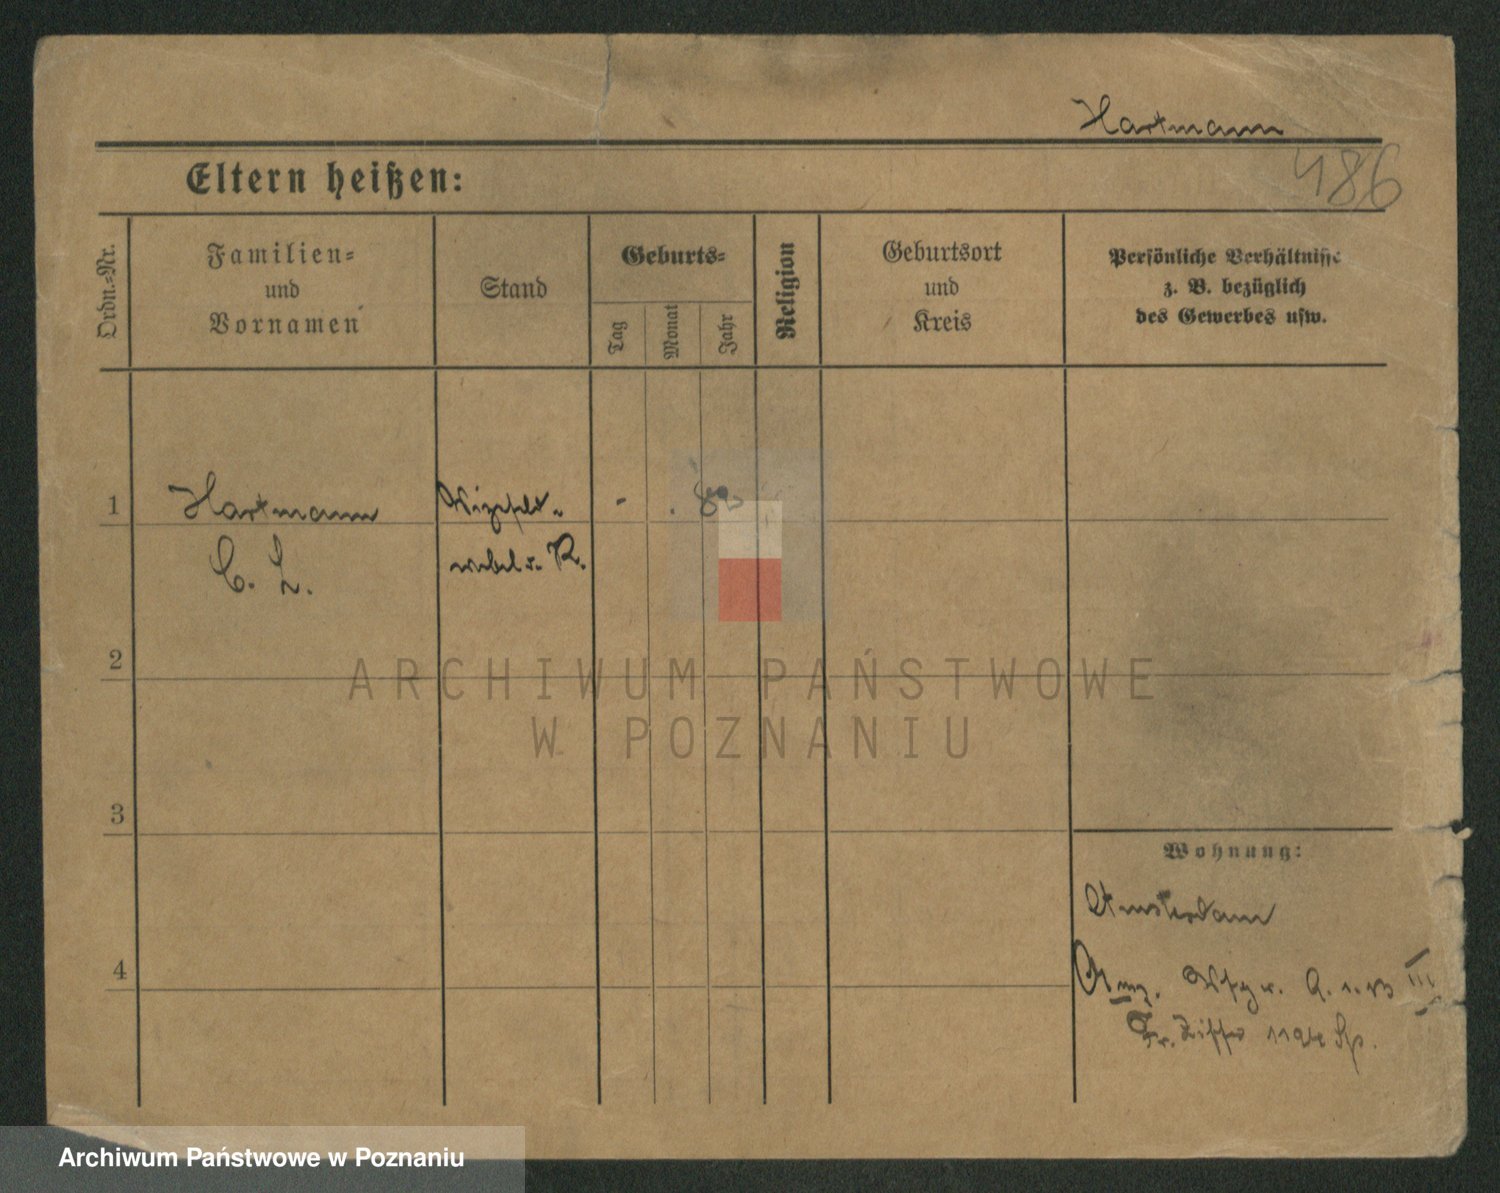 Hartmann
486
Eltern heißen:
Ordn.-Nr.
Familien-
und
Vornamen
Stand
Geburts-
Tag
Monat
Jahr
Religion
Geburtsort
und
Kreis
Persönliche Verhältnisse
z. B. bezüglich
des Gewerbes usw.
1
Hartmann
C. L.
Vizefeld-
webel d. R.
2
ARCHIWUM PAŃSTWOWE
W POZNANIU
3
Wohnung:
Amsterdam
4
III
Ziffer 1194
Archiwum Państwowe w Poznaniu